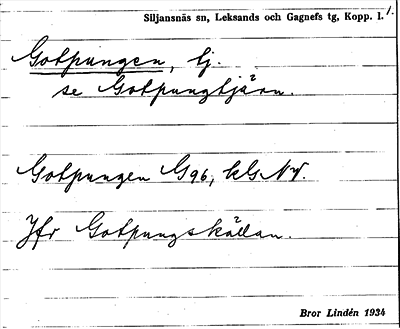 Siljansnäs sn, Leksands och Gagnefs tg, Kopp. l. 1.
Gotpungen, tj.
se Gotpungtjärn.
Gotpungen G96, kG NV.
Jfr Gotpungskällan.
Bror Lindén 1934